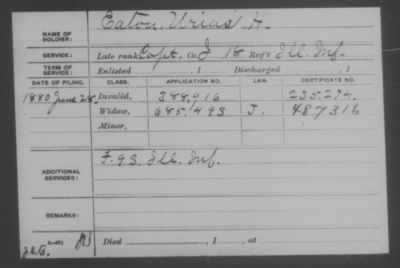 NAME OF SOLDIER: Eaton, Urias H.
SERVICE: Late rank Capt. Co. J 18 Reg't Ill. Inf.
TERM OF SERVICE: Enlisted , 1 Discharged , 1
DATE OF FILING. CLASS. APPLICATION NO. LAW. CERTIFICATE NO.
1880 June 28 Invalid, 388.916
Widow, 685.493 J. 487316
Minor,
ADDITIONAL SERVICES: F. 93. Ill. Inf.
REMARKS:
Died , 1 , at